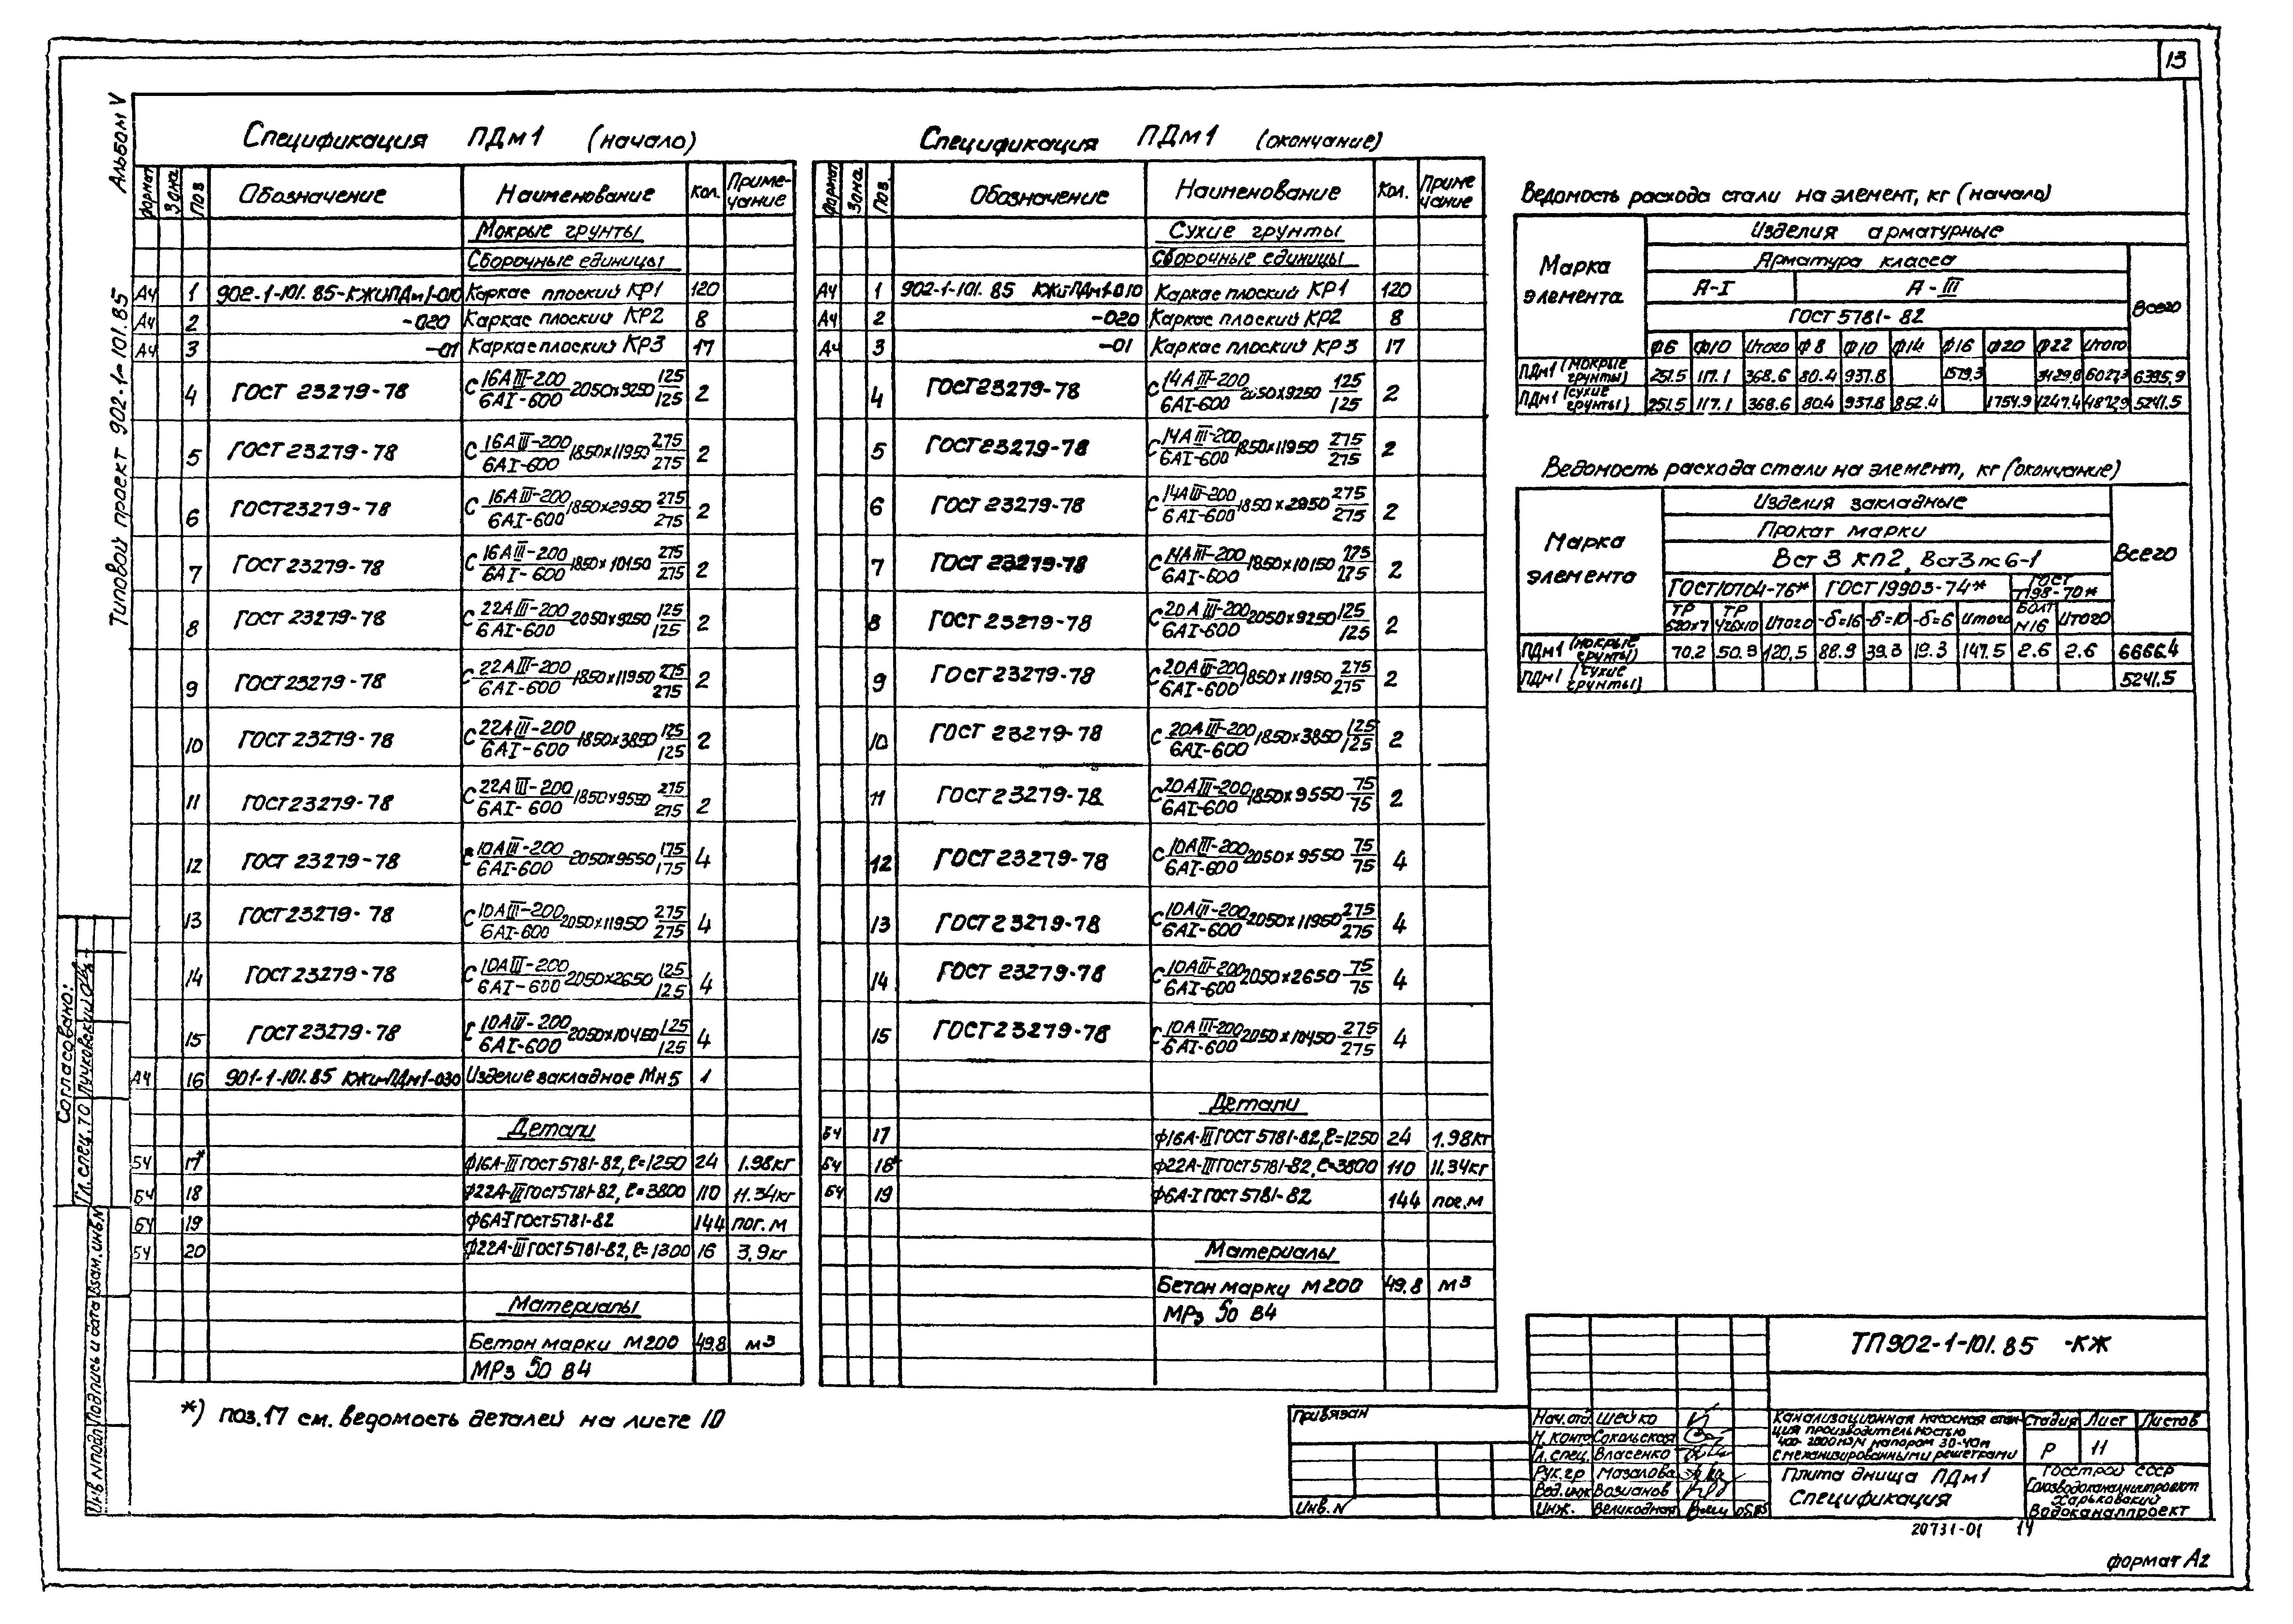 13
Альбом V
Типовой проект 902-1-101.85
Спецификация ПДм1 (начало)
Формат Зона Поз. Обозначение Наименование Кол. Примечание
Мокрые грунты
Сборочные единицы
А4 1 902-1-101.85-КЖИПДм1-010 Каркас плоский КР1 120
А4 2 -020 Каркас плоский КР2 8
А4 3 -01 Каркас плоский КР3 17
4 ГОСТ 23279-78 С 16АIII-200/6АI-600 2050х9250 125/125 2
5 ГОСТ 23279-78 С 16АIII-200/6АI-600 1850х11950 275/275 2
6 ГОСТ 23279-78 С 16АIII-200/6АI-600 1850х2950 275/275 2
7 ГОСТ 23279-78 С 16АIII-200/6АI-600 1850х10150 275/275 2
8 ГОСТ 23279-78 С 22АIII-200/6АI-600 2050х9250 125/125 2
9 ГОСТ 23279-78 С 22АIII-200/6АI-600 1850х11950 275/275 2
10 ГОСТ 23279-78 С 22АIII-200/6АI-600 1850х3850 125/125 2
11 ГОСТ 23279-78 С 22АIII-200/6АI-600 1850х9550 275/275 2
12 ГОСТ 23279-78 С 10АIII-200/6АI-600 2050х9550 175/175 4
13 ГОСТ 23279-78 С 10АIII-200/6АI-600 2050х11950 275/275 4
14 ГОСТ 23279-78 С 10АIII-200/6АI-600 2050х2650 125/125 4
15 ГОСТ 23279-78 С 10АIII-200/6АI-600 2050х10450 125/125 4
А4 16 901-1-101.85 КЖИ-ПДм1-030 Изделие закладное Мн5 1
Детали
БЧ 17* ф16А-III ГОСТ 5781-82, ℓ=1250 24 1.98кг
БЧ 18 ф22А-III ГОСТ 5781-82, ℓ=3800 110 11.34кг
БЧ 19 ф6А-I ГОСТ 5781-82 144 пог.м
БЧ 20 ф22А-III ГОСТ 5781-82, ℓ=1300 16 3,9кг
Материалы
Бетон марки М200 49.8 м³
МРз 50 В4
*) поз.17 см. ведомость деталей на листе 10
Спецификация ПДм1 (окончание)
Формат Зона Поз. Обозначение Наименование Кол. Примечание
Сухие грунты
Сборочные единицы
А4 1 902-1-101.85 КЖИ-ПДм1-010 Каркас плоский КР1 120
А4 2 -020 Каркас плоский КР2 8
А4 3 -01 Каркас плоский КР3 17
4 ГОСТ 23279-78 С 14АIII-200/6АI-600 2050х9250 125/125 2
5 ГОСТ 23279-78 С 14АIII-200/6АI-600 1850х11950 275/275 2
6 ГОСТ 23279-78 С 14АIII-200/6АI-600 1850х2950 275/275 2
7 ГОСТ 23279-78 С 14АIII-200/6АI-600 1850х10150 2
8 ГОСТ 23279-78 С 20АIII-200/6АI-600 2050х9250 125/125 2
9 ГОСТ 23279-78 С 20АIII-200/6АI-600 1850х11950 275/275 2
10 ГОСТ 23279-78 С 20АIII-200/6АI-600 1850х3850 125/125 2
11 ГОСТ 23279-78 С 20АIII-200/6АI-600 1850х9550 75/75 2
12 ГОСТ 23279-78 С 10АIII-200/6АI-600 2050х9550 75/75 4
13 ГОСТ 23279-78 С 10АIII-200/6АI-600 2050х11950 275/275 4
14 ГОСТ 23279-78 С 10АIII-200/6АI-600 2050х2650 75/75 4
15 ГОСТ 23279-78 С 10АIII-200/6АI-600 2050х10450 275/275 4
Детали
БЧ 17 ф16А-III ГОСТ 5781-82, ℓ=1250 24 1.98кг
БЧ 18* ф22А-III ГОСТ 5781-82, ℓ=3800 110 11.34кг
БЧ 19 ф6А-I ГОСТ 5781-82 144 пог.м
Материалы
Бетон марки М200 49.8 м³
МРз 50 В4
Ведомость расхода стали на элемент, кг (начало)
Марка элемента Изделия арматурные Всего
Арматура класса
А-I А-III
ГОСТ 5781-82
ф6 ф10 Итого ф8 ф10 ф14 ф16 ф20 ф22 Итого
ПДм1 (мокрые грунты) 251.5 117.1 368.6 80.4 937.8 1579.3 3429.8 6027.3 6395,9
ПДм1 (сухие грунты) 251.5 117.1 368.6 80.4 937.8 852.4 1754.9 1247.4 4872,9 5241.5
Ведомость расхода стали на элемент, кг (окончание)
Марка элемента Изделия закладные Всего
Прокат марки
Вст 3 кп2, Вст3пс6-1
ГОСТ 10704-76* ГОСТ 19903-74* ГОСТ 7798-70*
ТР 520х7 ТР 426х10 Итого -δ=16 -δ=10 -δ=6 Итого Болт М16 Итого
ПДм1 (мокрые грунты) 70.2 50.3 120.5 88.9 39.3 19.3 147.5 2.6 2.6 6666.4
ПДм1 (сухие грунты) 5241.5
Согласовано:
Гл. спец. ТО Лучковский
Инв. N подл. Подпись и дата Взам. инв. N
Привязан
Инв. N
ТП902-1-101.85 -КЖ
Нач.отд. Шейко
Н. конт. Сокольская
Гл. спец. Власенко
Рук.гр Мазалова
Вед.инж Возианов
Инж. Великодная
Канализационная насосная станция производительностью
400-2800 м3/ч напором 30-40м
с механизированными решетками
Стадия Лист Листов
Р 11
Плита днища ПДм1
Спецификация
Госстрой СССР
Союзводоканалниипроект
Харьковский
Водоканалпроект
20731-01 14
формат А2